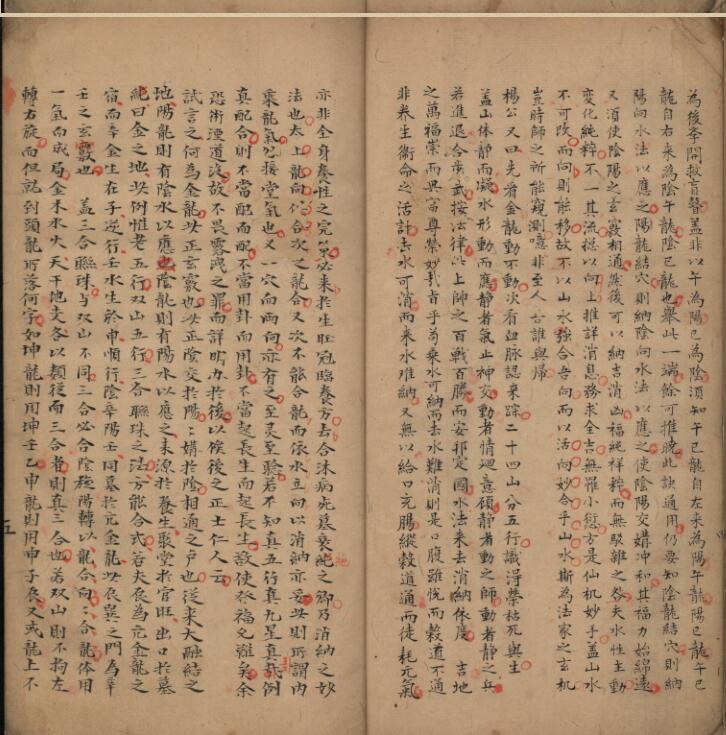 為後學開救盲瞽盖非以午為陽巳為陰須知午巳龍自左來為陽午龍陽巳龍午巳
龍自右來為陰午龍陰巳龍也舉此一端餘可推曉此訣通用仍要知陰龍結穴則納
陽向水法以應之陽龍結穴則納陰向水法以應之使陰陽交媾冲和其福力始綿遠
又須使陰陽之玄竅相通然後可以納吉消凶福純祥粹而無駁雜之咎夫水性主動
變化純粹不一其流總以向上推詳消息務求全吉無罹小愆方是仙机妙手盖山水
不可改而向則能移故不以山水強合吾向而以活向妙合乎山水斯為法家之玄机
豈時師之所能窺測噫非至人吾誰與歸
楊公又曰先看金龍動不動次看血脉認來踪二十四山分五行識得榮枯死與生
盖山体靜而凝水形動而應靜者氣止神交動者情廻意顧靜者動之師動者靜之丘
若進退合步武按法律此上帥之百戰百勝而安邦定國水法來去消納依度吉地
之萬福崇而興富尊榮妙哉者乎苟乘水可納而去水難消則是口腹雖悅而穀道不通
非养生衛命之活計去水可消而來水难納又無以給口充腸縱穀道通而徒耗元氣
亦非全身養性之完策必来於生旺冠臨養方去合沐病死墓衰絕之鄉乃消納之妙
法也太上龍向水合次之龍合又次不能合龍而依水立向以消納亦妥此則所謂內
乘龍氣外接堂氣也又一穴而两向亦有之至灵至驗若不知真五行真九星真龍例
真配合則不當配而配不當用卦而用卦不當起長生而起長生欲使祭福免难矣余
恐術湮道沒故不畏露洩之罪而詳明於後以俟後之正士仁人云
試言之何為金龍此正玄竅也此正陰交於陽陽媾於陰相通之户也從來大融結之
地陽龍則有陰水以應也陰龍則有陽水以應之来源於養生聚堂於官旺出口於墓
絕曰金之地此例惟老五行双山五行三合聯珠之法方能合式若夫辰為亢金龍之
宿而辛金生在子逆行壬水生於申順行陰辛陽壬同墓於元金龍此辰巽之門為辛
壬之玄竅也盖三合聯珠与双山不同三合必合陰施陽轉以龍合向合龍体用
一氣而成局金木水火天干地支各以類從而三合者則真三合也若双山則不拘左
轉右旋而但說到頭龍所落何字如坤龍則用坤壬乙申龍則用申子辰又或龍上不